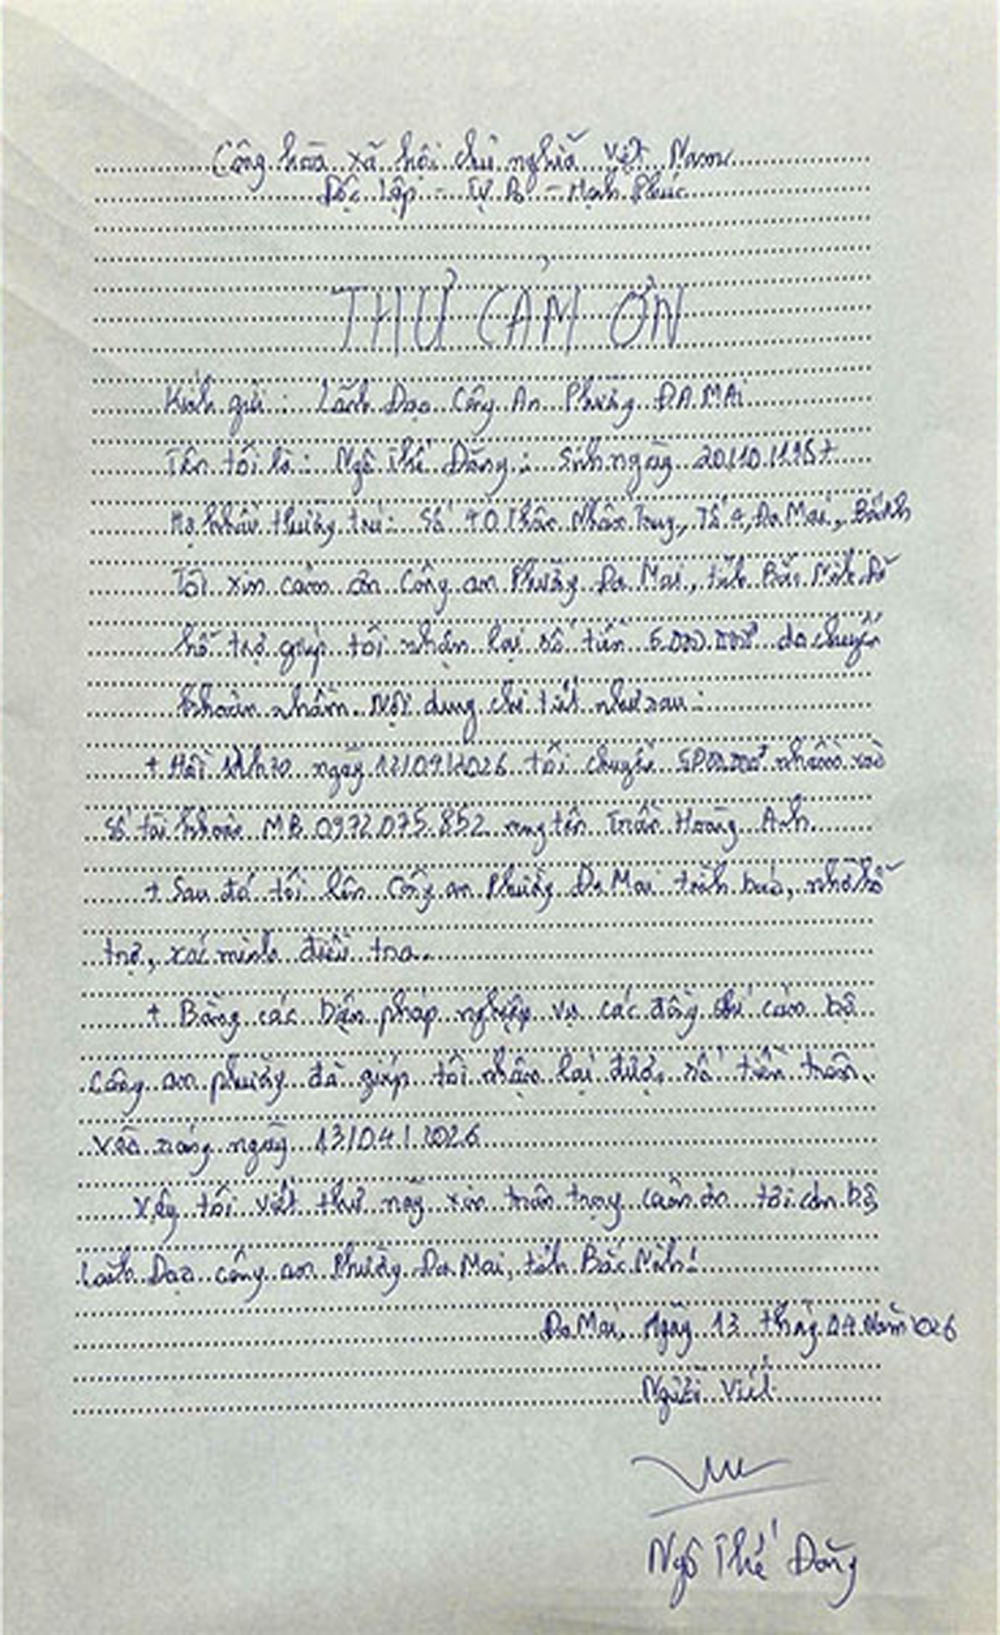 Cộng hòa xã hội chủ nghĩa Việt Nam
Độc Lập - Tự Do - Hạnh Phúc
THƯ CẢM ƠN
Kính gửi: Lãnh Đạo Công An Phường ĐA MAI
Tên tôi là: Ngô Thế Đăng: Sinh ngày 20/10/1957
Hộ khẩu thường trú: Số 40 Thân Nhân Trung, Tổ 4, Đa Mai,
Tôi xin cảm ơn Công an Phường Đa Mai, tỉnh Bắc Ninh Đã
hỗ trợ giúp tôi nhận lại số tiền 5.000.000đ do chuyển
khoản nhầm. Nội dung chi tiết như sau:
+ Hồi ngày tôi chuyển 5.000.000đ nhầm vào
số tài khoản MB 0972.075.852 mang tên Trần Hoàng Anh.
+ Sau đó tôi lên Công an Phường Đa Mai trình báo, nhờ hỗ
trợ, xác minh điều tra.
+ Bằng các biện pháp nghiệp vụ các đồng chí cán bộ
công an phường đã giúp tôi nhận lại được số tiền trên
vào sáng ngày 13/04/2026
Vậy tôi viết thư này xin trân trọng cảm ơn tới cán bộ
Lãnh Đạo công an Phường Đa Mai, tỉnh Bắc Ninh!
Đa Mai, Ngày 13 tháng 04 Năm 2026
Người Viết
Ngô Thế Đăng